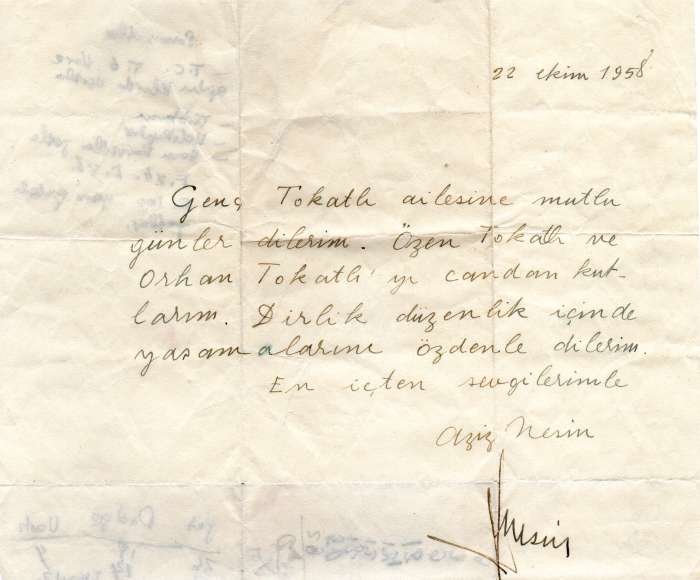 22 ekim 1958
Genç Tokatlı ailesine mutlu
günler dilerim. Özen Tokatlı ve
Orhan Tokatlı'yı candan kut-
larım. Dirlik düzenlik içinde
yaşamalarını özdenle dilerim.
En içten sevgilerimle
Aziz Nesin
Nesin